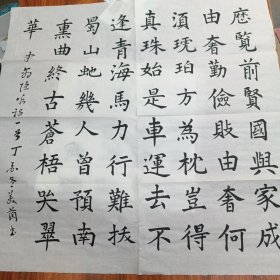 厯覽前賢國與家成
由奢勤儉敗由奢何
湏琥珀方為枕豈得
真珠始是車運去不
逢青海馬力行難拔
蜀山虵幾人曾預南
熏曲終古蒼梧哭翠
華 李商隱詠詩一首丁亥書